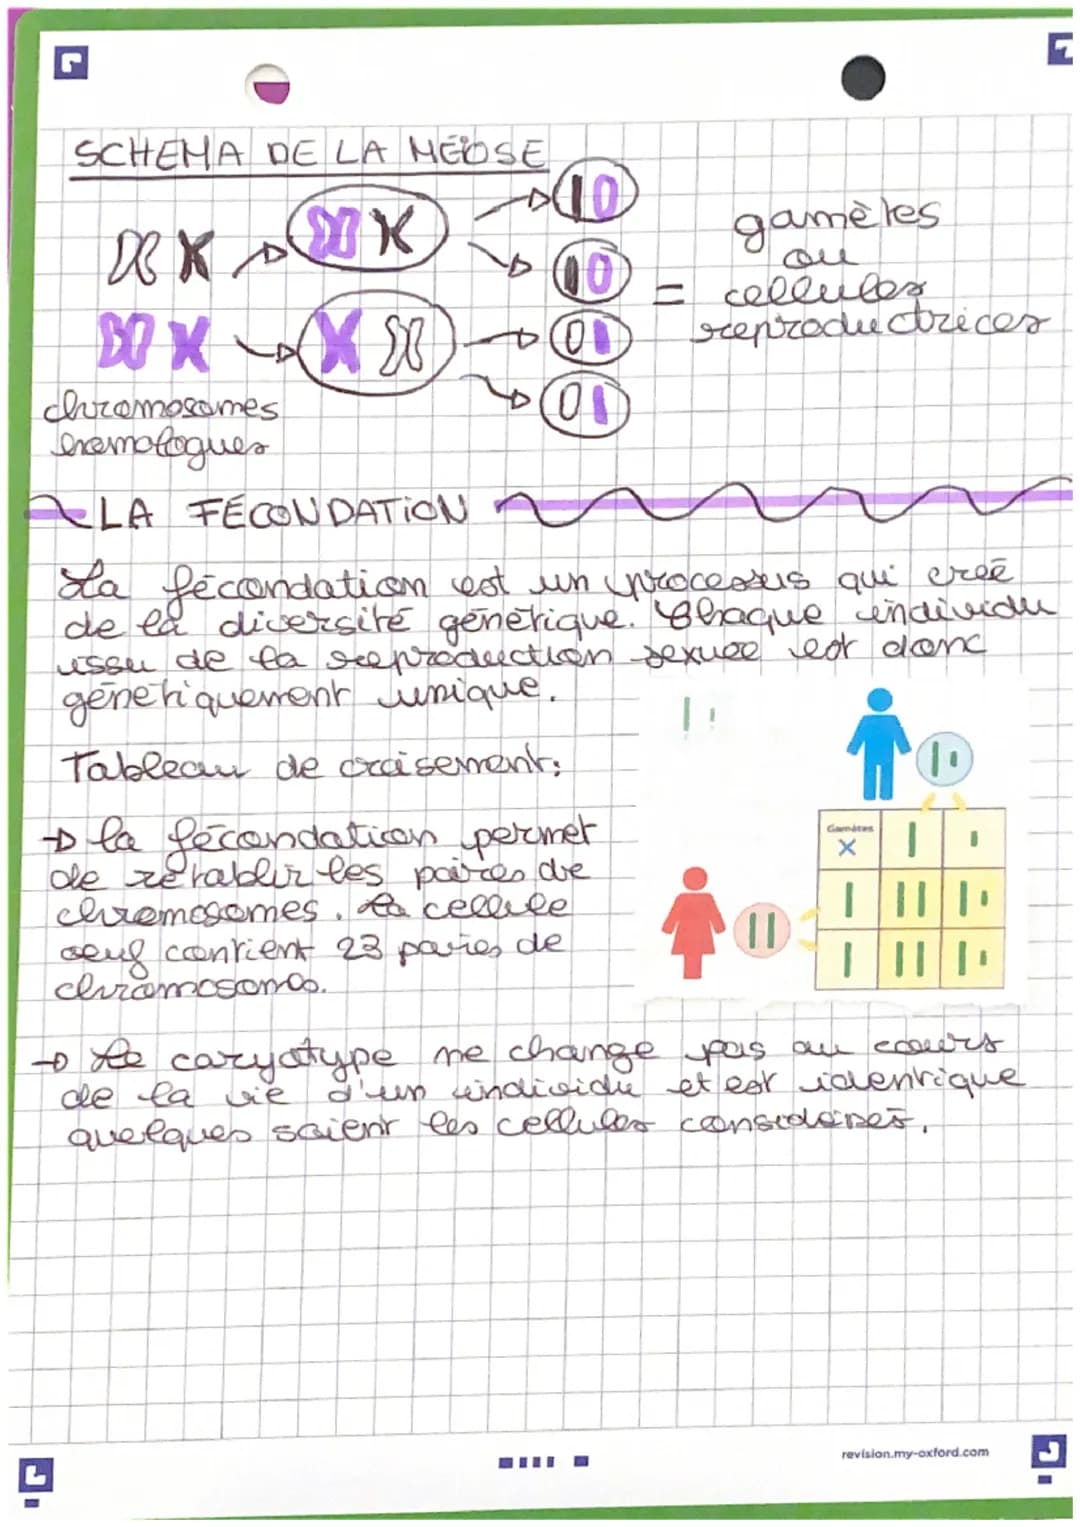 SCHEMA DE LA MÉIOSE
gamètes
ou
= cellules
reproductrices
chromosomes
homologues
LA FÉCONDATION
La fécondation est un processus qui creé
de la diversité génétique. Chaque individu
issu de la reproduction sexuée est donc
génétiquement unique.
Tableau de croisement:
→ la fécondation permet
de rétablir les paires de
chromosomes. La cellule
oeuf contient 23 paires de
chromosomes.
Gamètes
→ Le caryotype ne change pas au cours
de la vie d'un individu et est identique
quelques soient les cellules considérés.
revision.my-oxford.com